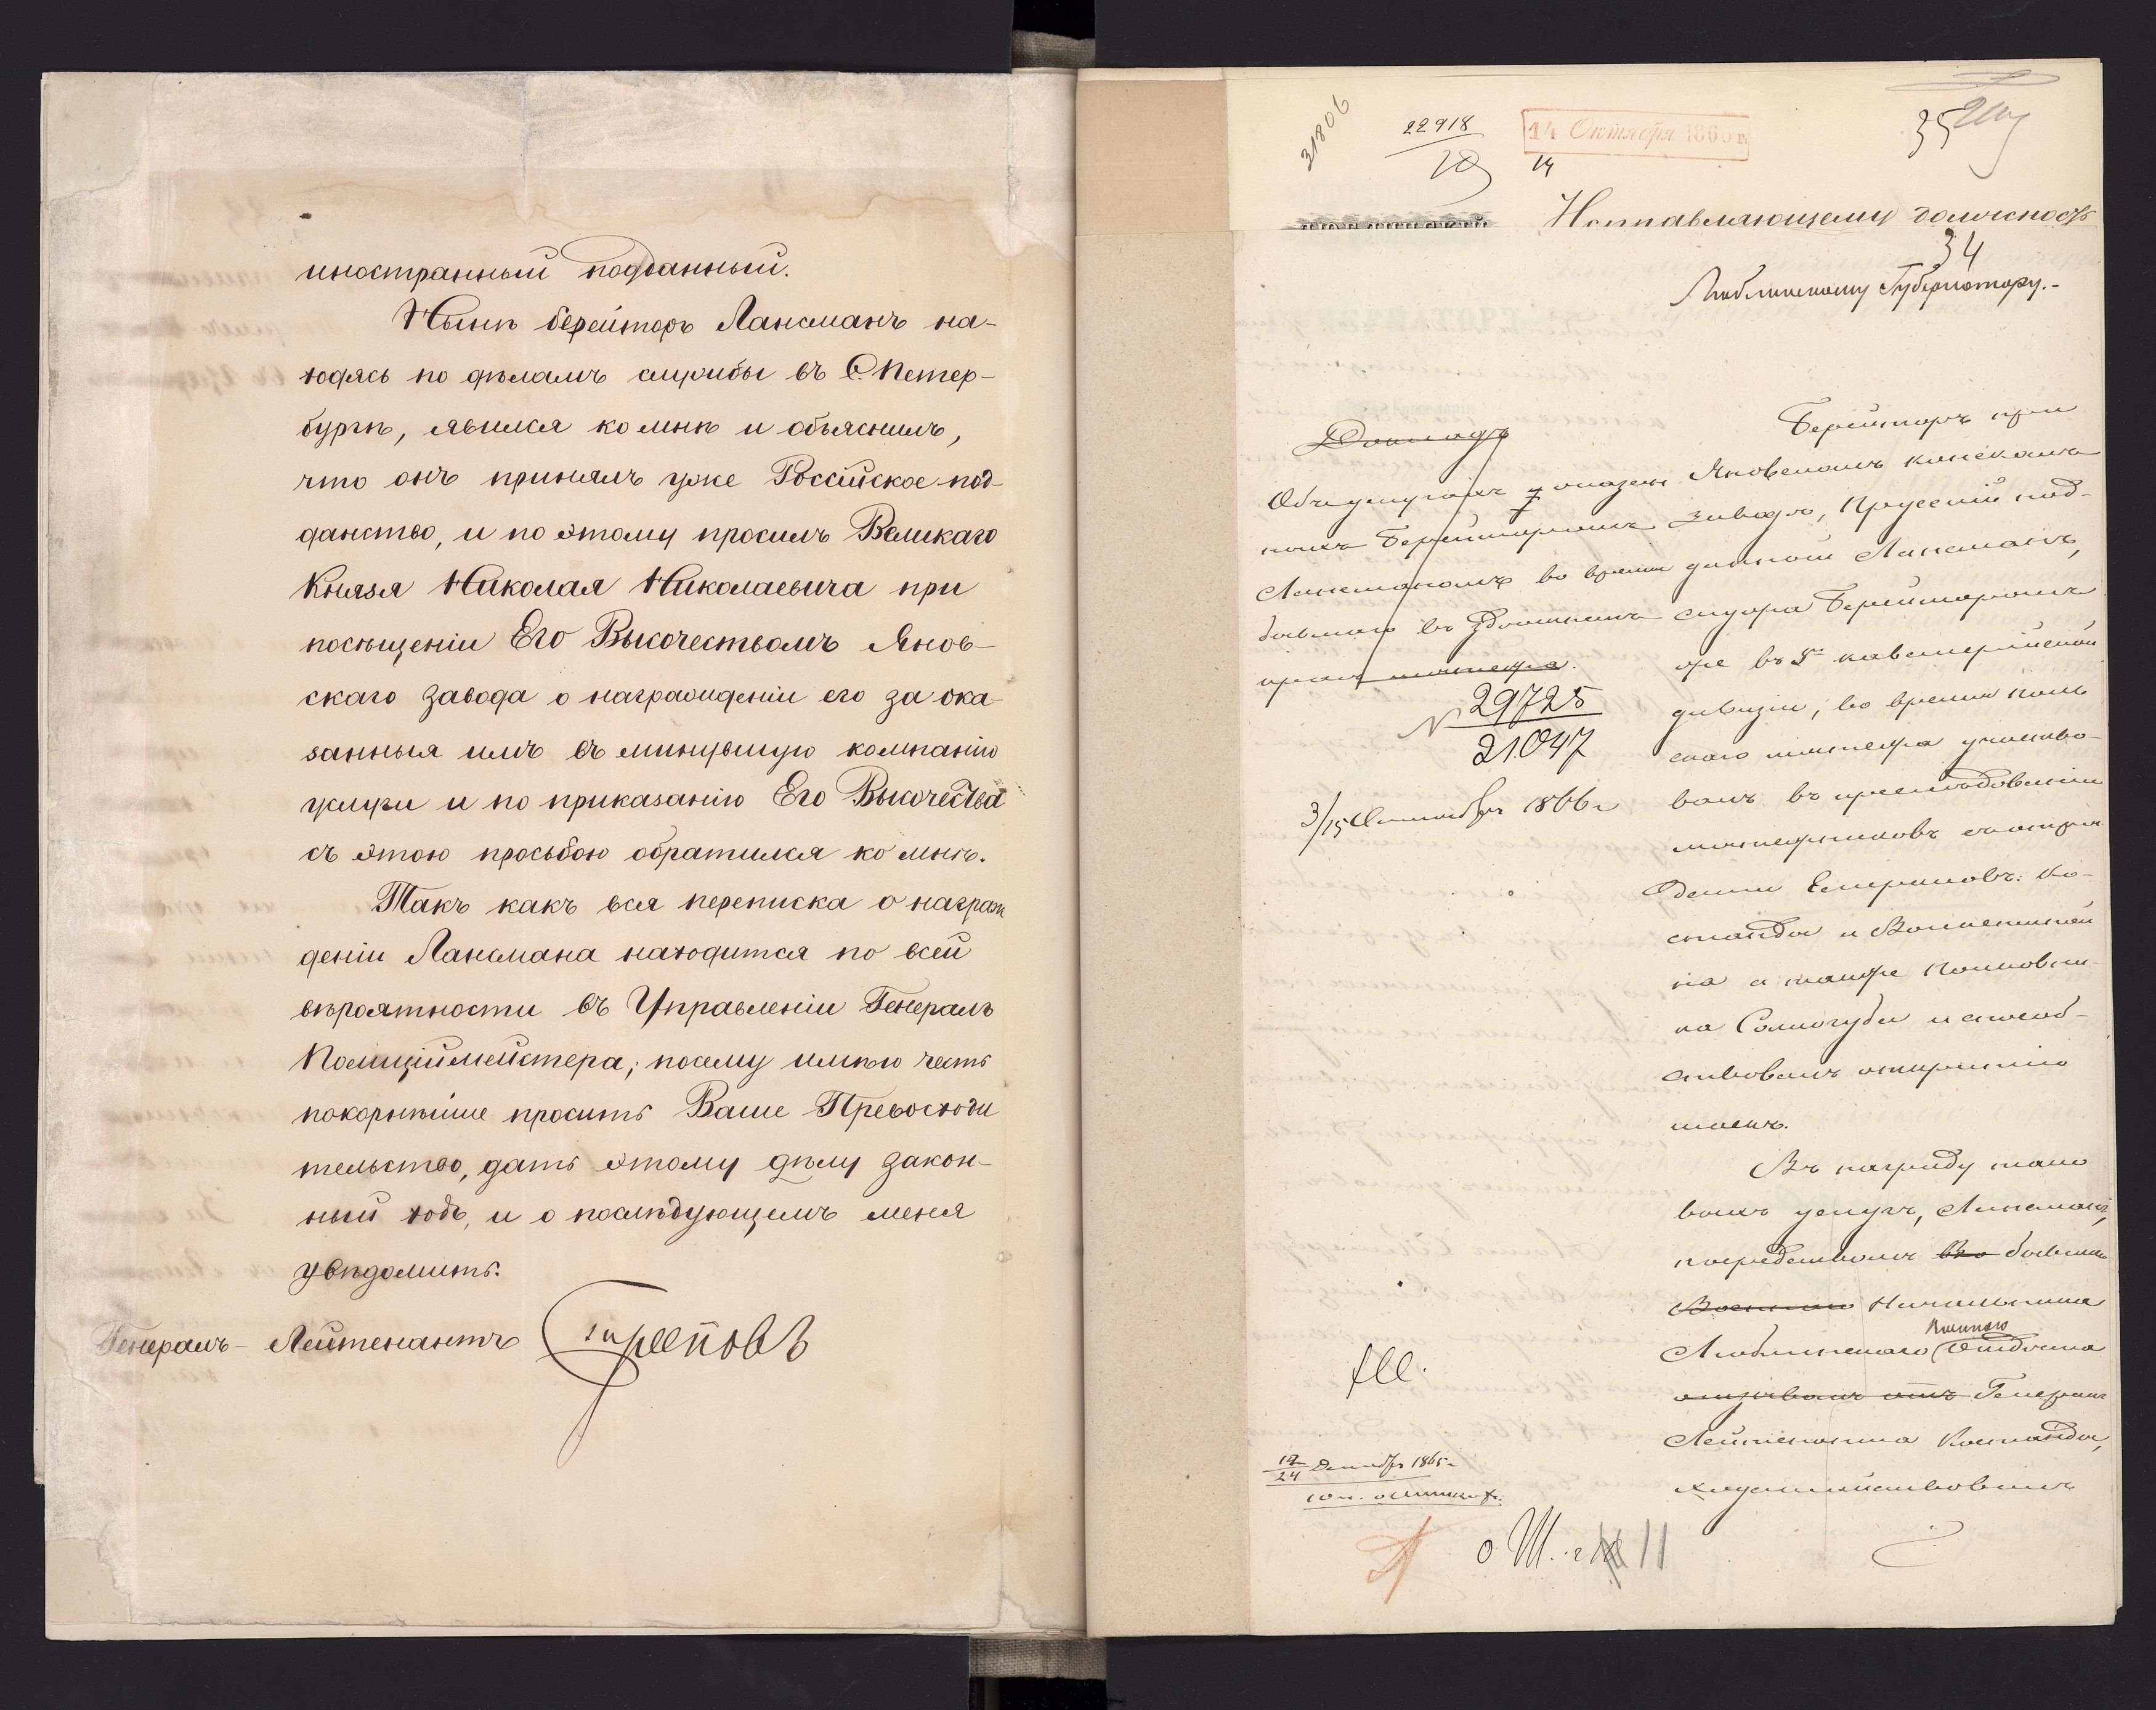 иностранный подданный.
Нынѣ берейторъ Лансманъ на-
ходясь по дѣламъ службы въ С. Петер-
бургѣ, явился ко мнѣ и объяснилъ,
что онъ принялъ уже Россійское под-
данство, и по этому просилъ Великаго
Князя Николая Николаевича при
посѣщеніи Его Высочествомъ Янов-
скаго завода о награжденіи его за ока-
занныя имъ въ минувшую компанію
услуги и по приказанію Его Высочества
съ этою просьбою обратился ко мнѣ.
Такъ какъ вся переписка о награж
деніи Лансмана находится по всей
вѣроятности въ Управленіи Генералъ
Полиціймейстера; посему имѣю честь
покорнѣйше просить Ваше Превосходи
тельство, дать этому дѣлу закон-
ный ходъ, и о послѣдующемъ меня
увѣдомить.
Генералъ-Лейтенантъ
31806
22918
14 Октября 1866 г.
14
35
Исправляющему должность
34
Люблинскому Губернатору.-
Докладъ
Объ услугахъ оказан
ныхъ Берейторомъ
Лансманомъ во время
бывшаго въ
мятежа.
№ 29725
21047
3/15 Сентября 1866 г
12/24 Декабря 1865 г.
Берейторъ при
Яновскомъ конскомъ
заводѣ, Прусскій под-
данный Лансманъ,
служа Берейторомъ
же въ 5й кавалерійской
дивизіи, во время поль
скаго мятежа участво-
валъ въ преслѣдованіи
мятежниковъ
Ко-
и
на а также Полковни-
ка Сологуба и способ-
ствовалъ открытію
шаекъ.
Въ награду тако
выхъ услугъ, Лансманъ,
посредствомъ бывшаго
Военнаго Начальника
Военнаго
Люблинскаго Отдѣла
Генералъ
Лейтенанта
ходатайствовалъ
о III. 11